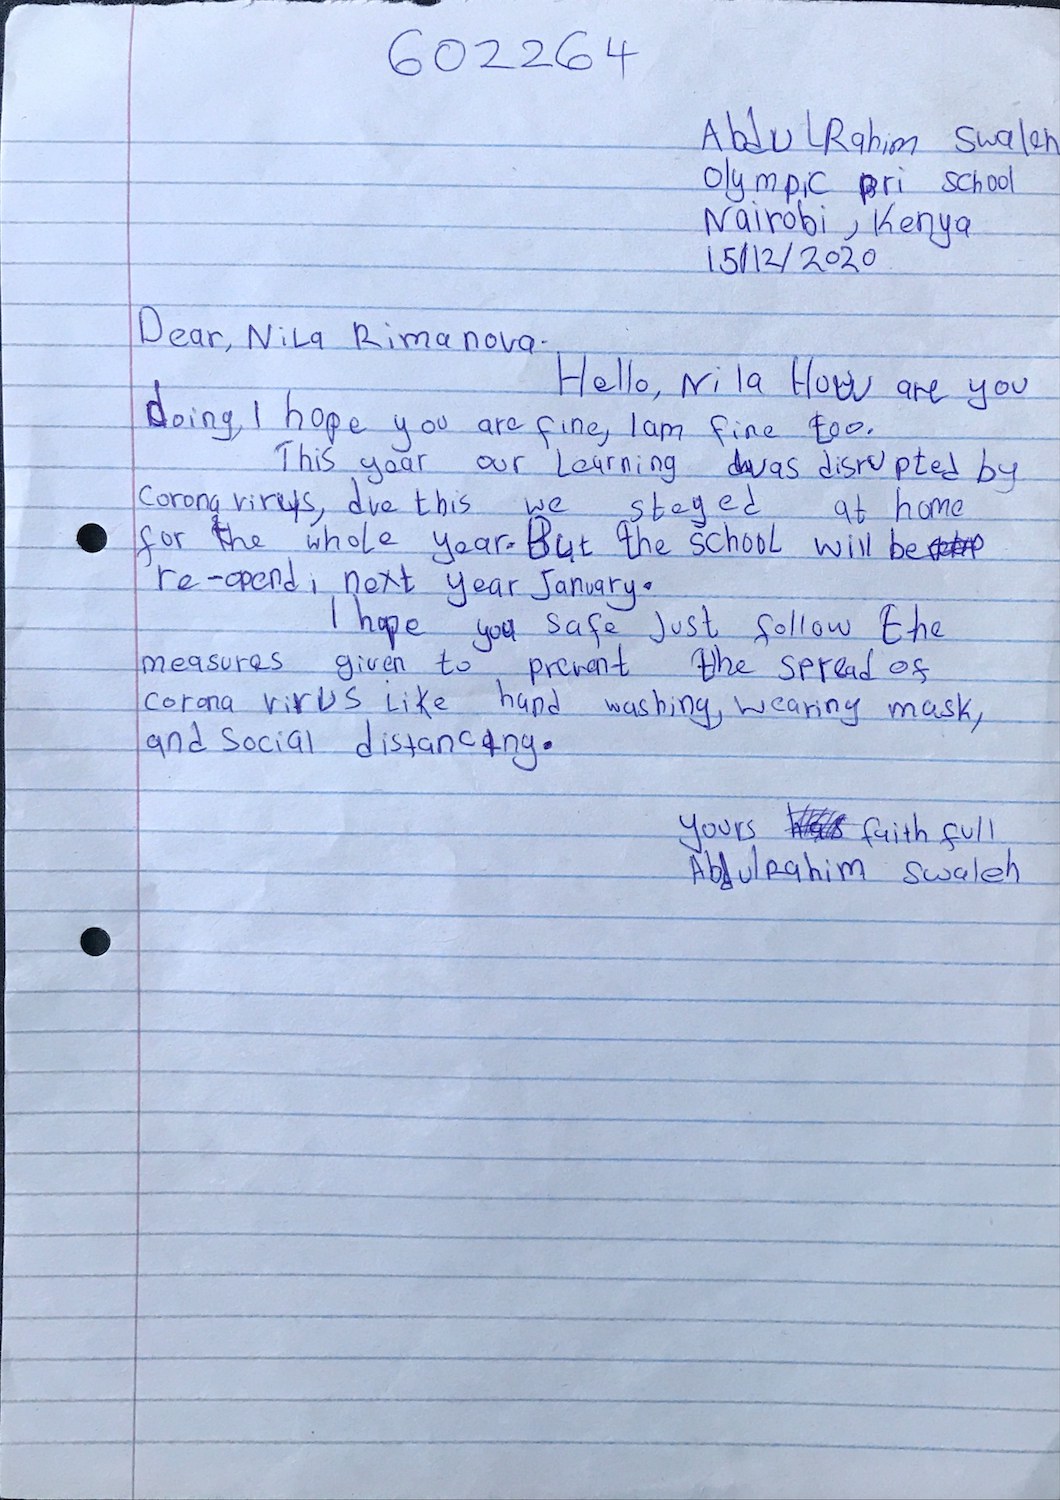 602264
AbdulRahim Swaleh
Olympic pri school
Nairobi, Kenya
15/12/2020
Dear, Nila Rimanova.
Hello, Nila How are you
doing, I hope you are fine, Iam fine too.
This year our learning was disrupted by
corona virus, due this we stayed at home
for the whole year. But the school will be
re-opend, next year January.
I hope you safe Just follow the
measures given to prevent the spread of
corona virus Like hand washing, wearing mask,
and social distancing.
Yours faith full
Abdulrahim Swaleh